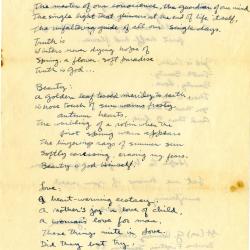 The master of our conscience, the guardian of our mind
The single light that shines at the end of life itself,
The unfaltering guide of all our single days.
Truth is
Winters never dying hopes of
Spring, a flower soft paradise
Truth is God...
Beauty.
A golden leaf
whose touch of sun warms frosty
autumn hearts.
The of a robin when the
first spring warm appears
The lingering days of summer sun
Softly caressing, erasing my fears.
Beauty is God Himself.
Love.
A heart-warming ecstasy.
A mother's joy in love of child,
A woman's love for man,
These things unite in love.
Did they but try.